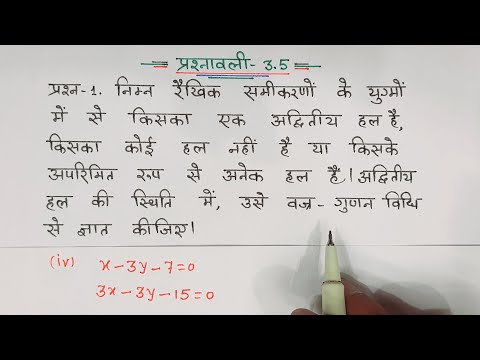 प्रश्नावली - 3.5
प्रश्न-1. निम्न रैखिक समीकरणों के युग्मों
में से किसका एक अद्वितीय हल है,
किसका कोई हल नहीं है या किसके
अपरिमित रूप से अनेक हल हैं। अद्वितीय
हल की स्थिति में, उसे वज्र-गुणन विधि
से ज्ञात कीजिए।
(iv) x-3y-7=0
3x-3y-15=0